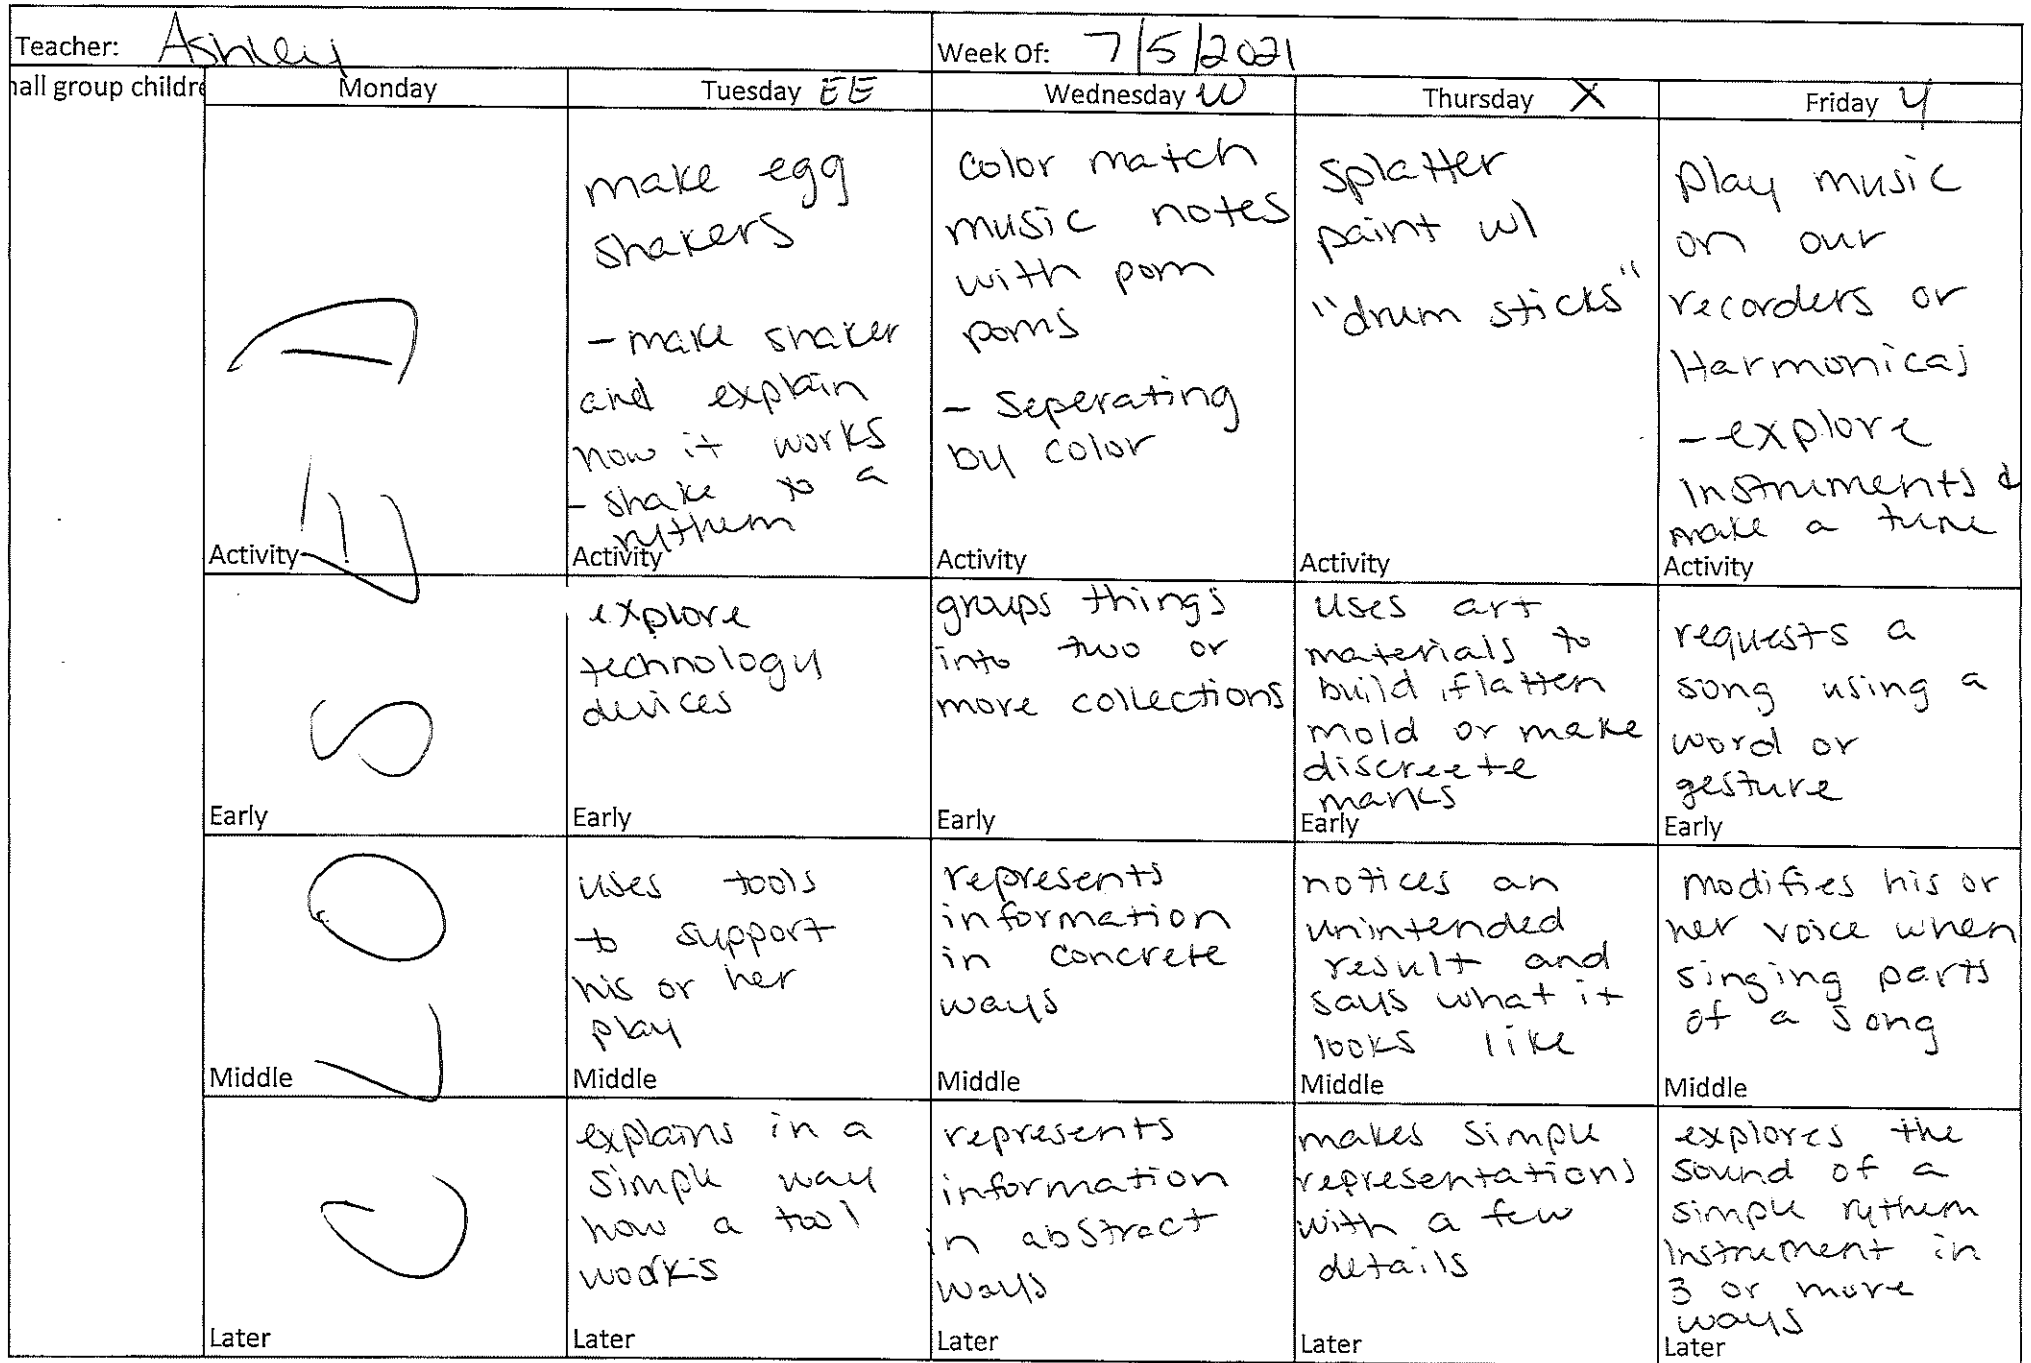 Teacher: Ashley
Week Of: 7/5/2021
nall group childre
Monday
Tuesday EE
Wednesday W
Thursday X
Friday Y
CLOSED
Activity
make egg
shakers
- make shaker
and explain
how it works
- shake to a
rythem
Activity
Color match
music notes
with pom
poms
- Seperating
by color
Activity
Splatter
paint w/
"drum sticks"
Activity
Play music
on our
recorders or
Harmonicas
- explore
instruments &
make a tune
Activity
Early
explore
technology
devices
Early
groups things
into two or
more collections
Early
uses art
materials to
build, flatten
mold or make
discreete
marks
Early
requests a
song using a
word or
gesture
Early
Middle
uses tools
to support
his or her
play
Middle
represents
information
in concrete
ways
Middle
notices an
unintended
result and
says what it
looks like
Middle
modifies his or
her voice when
singing parts
of a song
Middle
Later
explains in a
simple way
how a tool
works
Later
represents
information
in abstract
ways
Later
makes simple
representations
with a few
details
Later
explores the
sound of a
simple rythem
instrument in
3 or more
ways
Later